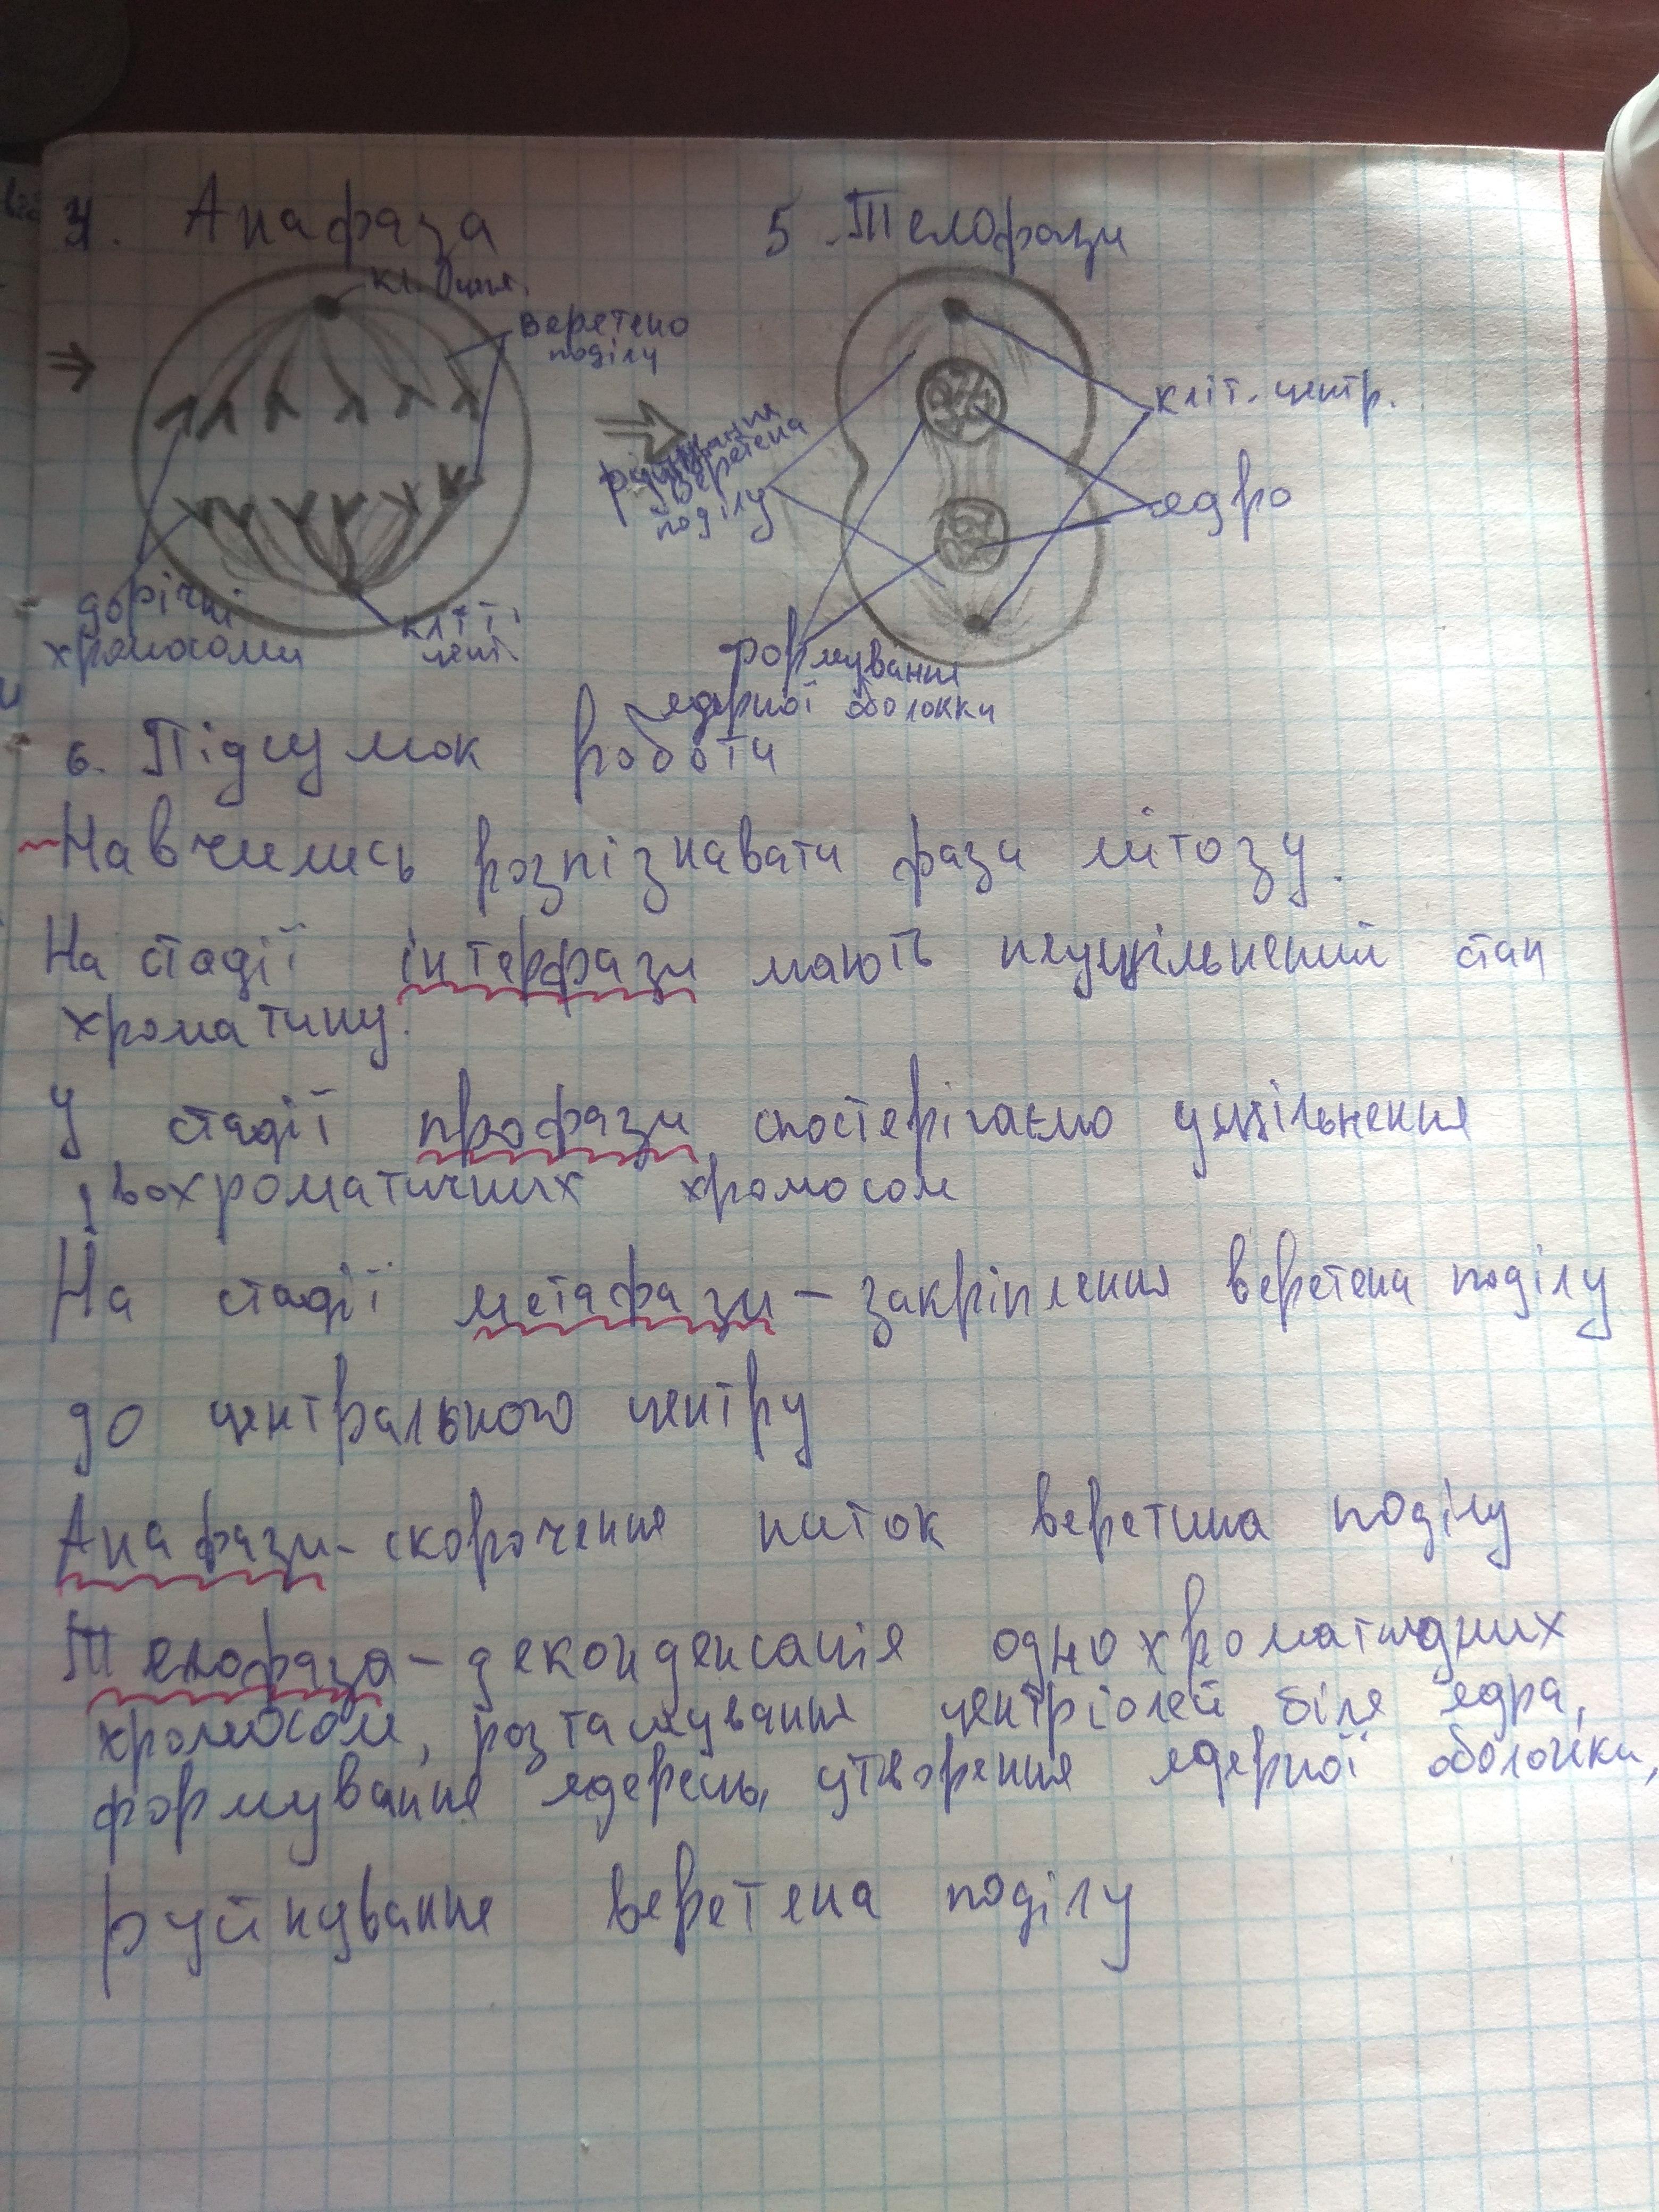 4. Анафаза
5. Телофази
кл. центр.
веретено
поділу
дорічні
хромосоми
кліт.
цент.
руйнування
веретена
поділу
кліт. центр.
ядро
формування
ядерної оболонки
6. Підсумок роботи
Навчились розпізнавати фази мітозу.
На стадії інтерфази мають неущільнений стан
хроматину.
У стадії профази спостерігаємо ущільнення
двохроматичних хромосом
На стадії метафази – закріплення веретена поділу
до центрального центру
Анафази - скорочення ниток веретина поділу
Телофаза – деконденсація однохроматидних
хромосом, розташування центріолей біля ядра,
формування ядерець, утворення ядерної оболонки,
руйнування веретена поділу